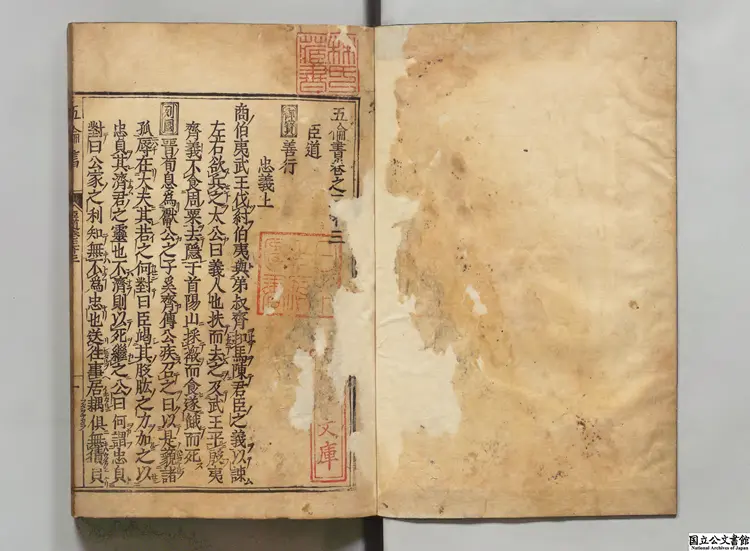 五倫書卷之 十三
臣道
善行
忠義上
商伯夷武王伐紂伯夷與弟叔齊扣馬陳君臣之義以諫
左右欲兵之太公曰義人也扶而去之及武王平殷夷
齊義不食周粟去隱于首陽山採薇而食遂餓而死
列國晉荀息為獻公之子奚齊傅公疾召之曰以是藐諸
孤辱在大夫其若之何對曰臣竭其股肱之力加之以
忠貞其濟君之靈也不濟則以死繼之公曰何謂忠貞
對曰公家之利知無不為忠也送往事居耦俱無猜貞
五倫書
文庫
国立公文書館
National Archives of Japan